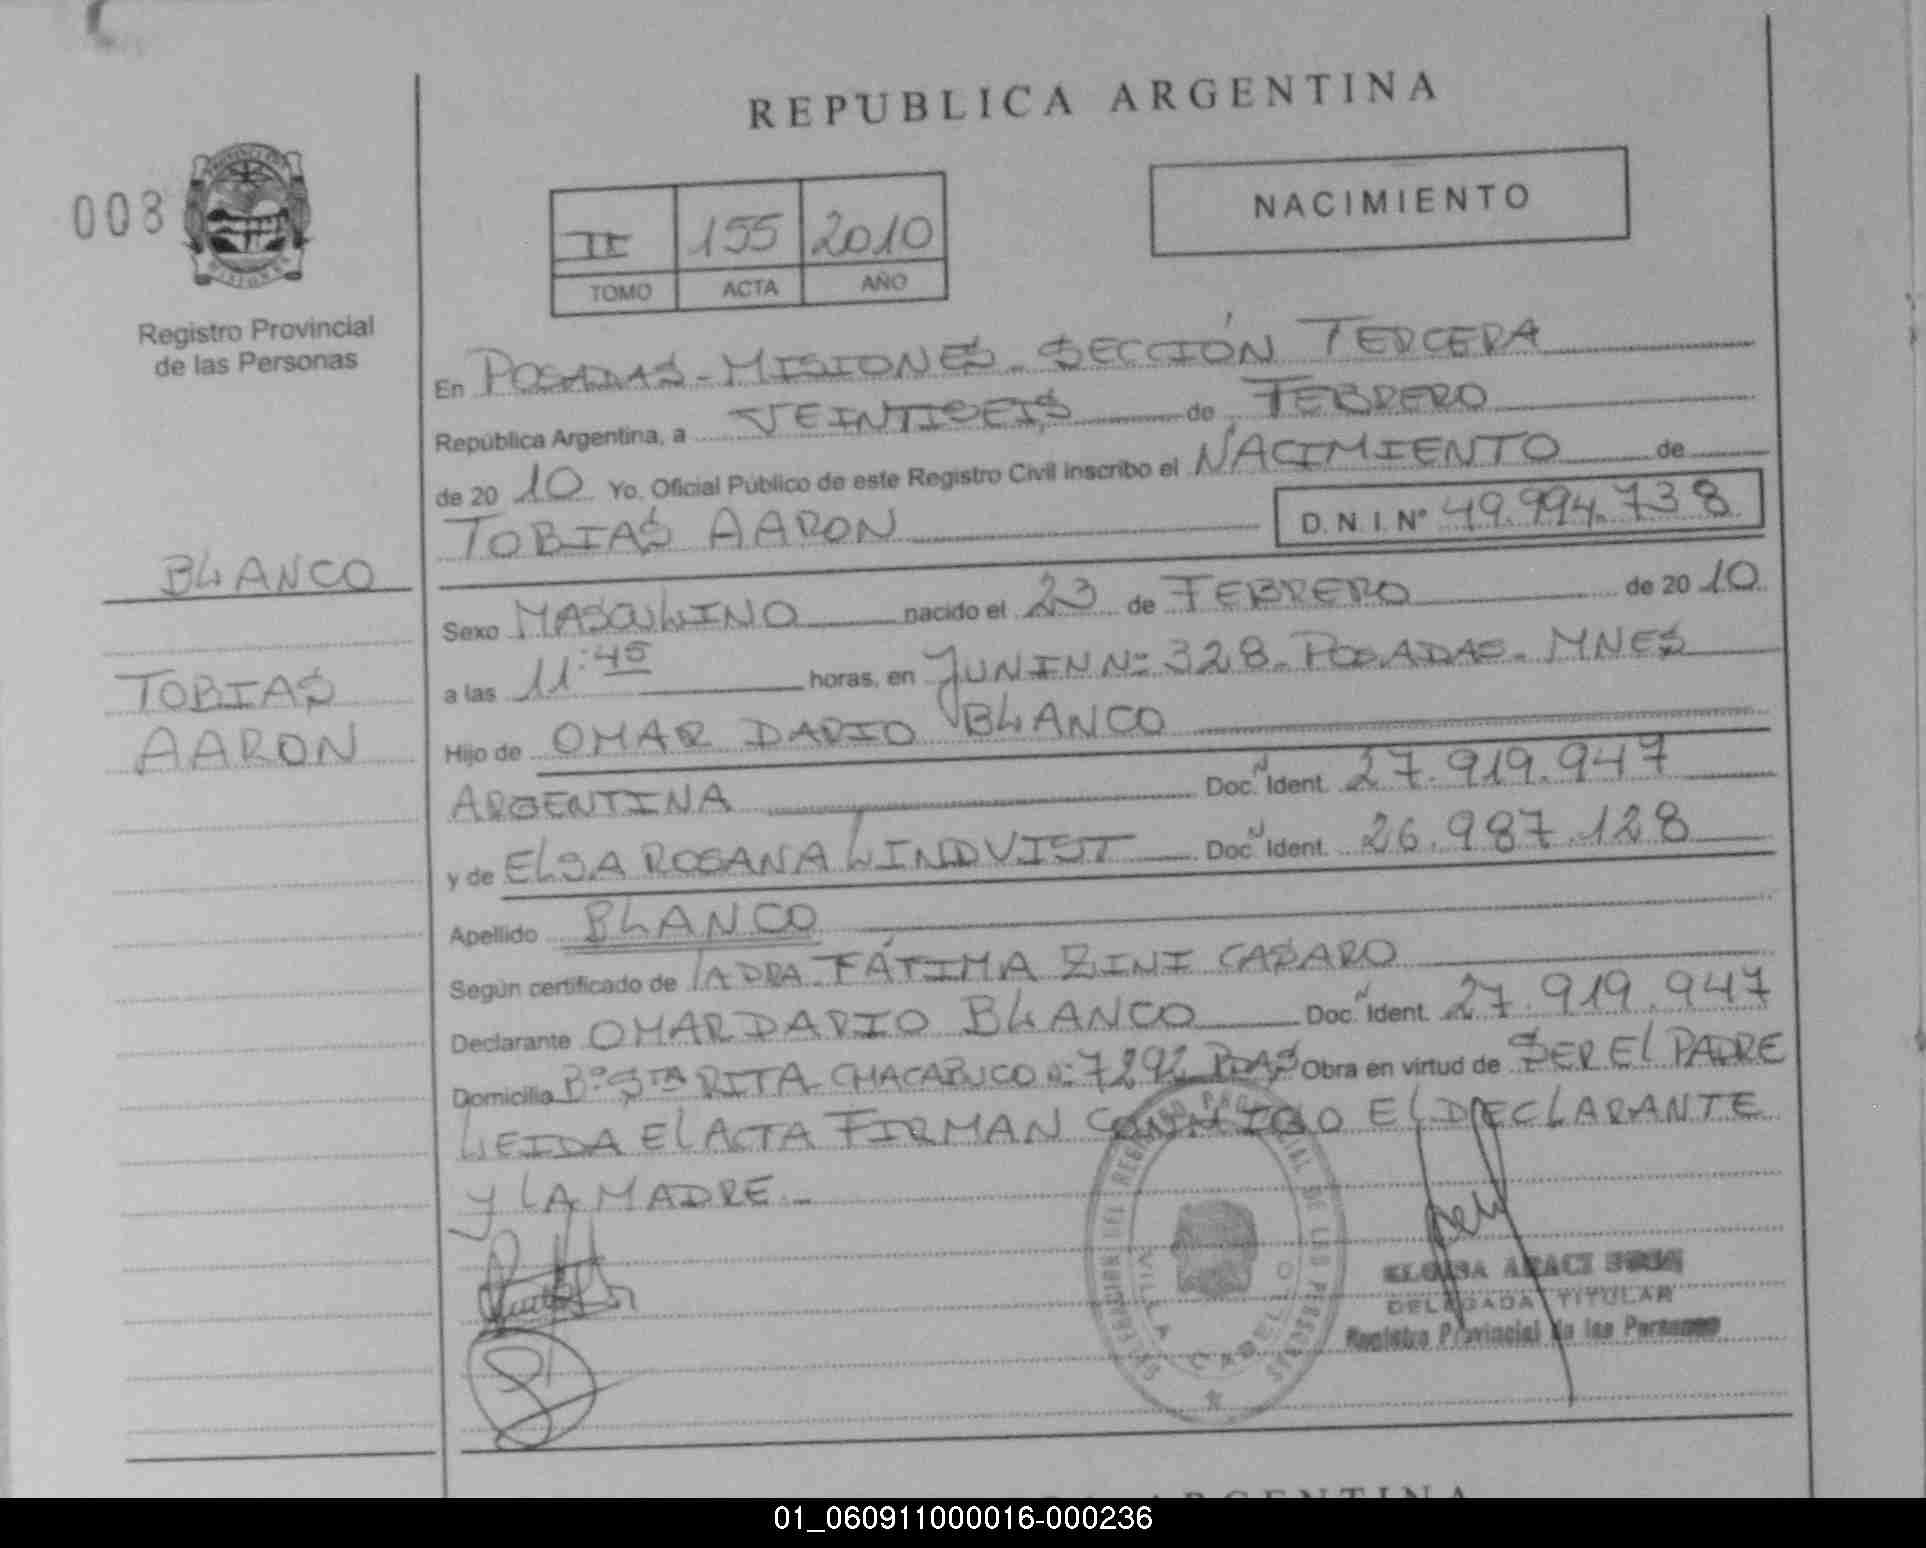 REPUBLICA ARGENTINA
008
NACIMIENTO
II 155 2010
TOMO ACTA AÑO
Registro Provincial
de las Personas
En POSADAS - MISIONES - SECCIÓN TERCERA
República Argentina, a VEINTISEIS de FEBRERO
de 20 10 Yo. Oficial Público de este Registro Civil inscribo el NACIMIENTO de
TOBIAS AARON D.N.I. Nº 49.994.738
BLANCO
TOBIAS
AARON
Sexo MASCULINO nacido el 23 de FEBRERO de 20 10
a las 11:45 horas, en JUNIN Nº 328 - POSADAS - MNES
Hijo de OMAR DARIO BLANCO
ARGENTINA Doc. N Ident. 27.919.947
y de ELSA ROSANA LINDVIST Doc. N Ident. 26.987.128
Apellido BLANCO
Según certificado de LA DRA. FÁTIMA ZINI CASARO
Declarante OMAR DARIO BLANCO Doc. N Ident. 27.919.947
Domicilio Bº STA RITA CHACABUCO Nº 7292 PDAS Obra en virtud de SER EL PADRE
LEIDA EL ACTA FIRMAN CONMIGO EL DECLARANTE
Y LA MADRE -
DELEGADA TITULAR
Registro Provincial de las Personas
VILLA CABELLO
ARGENTINA
01_060911000016-000236